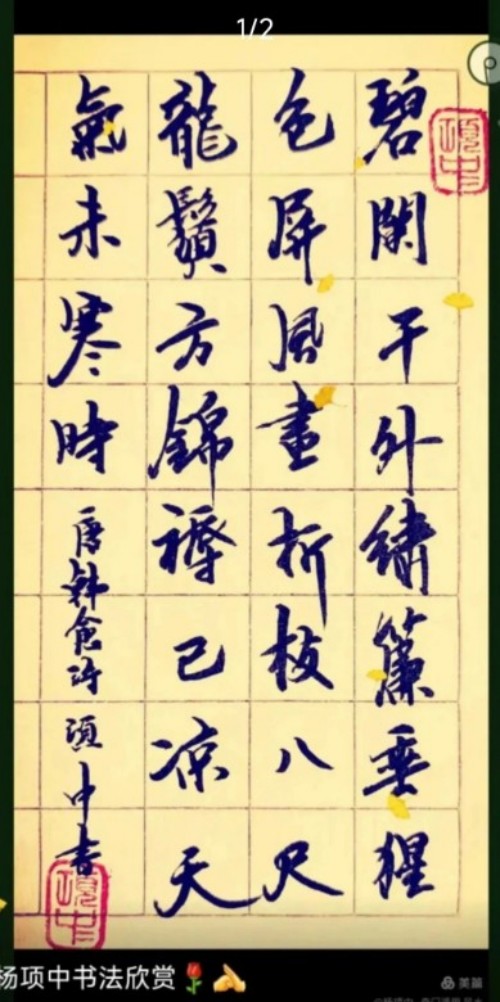 1/2
碧闌干外繡簾垂猩
色屏風畫折枝八尺
龍鬚方錦褥已凉天
氣未寒時
唐韩偓诗
項中書
項中
項中
杨项中书法欣赏
美篇